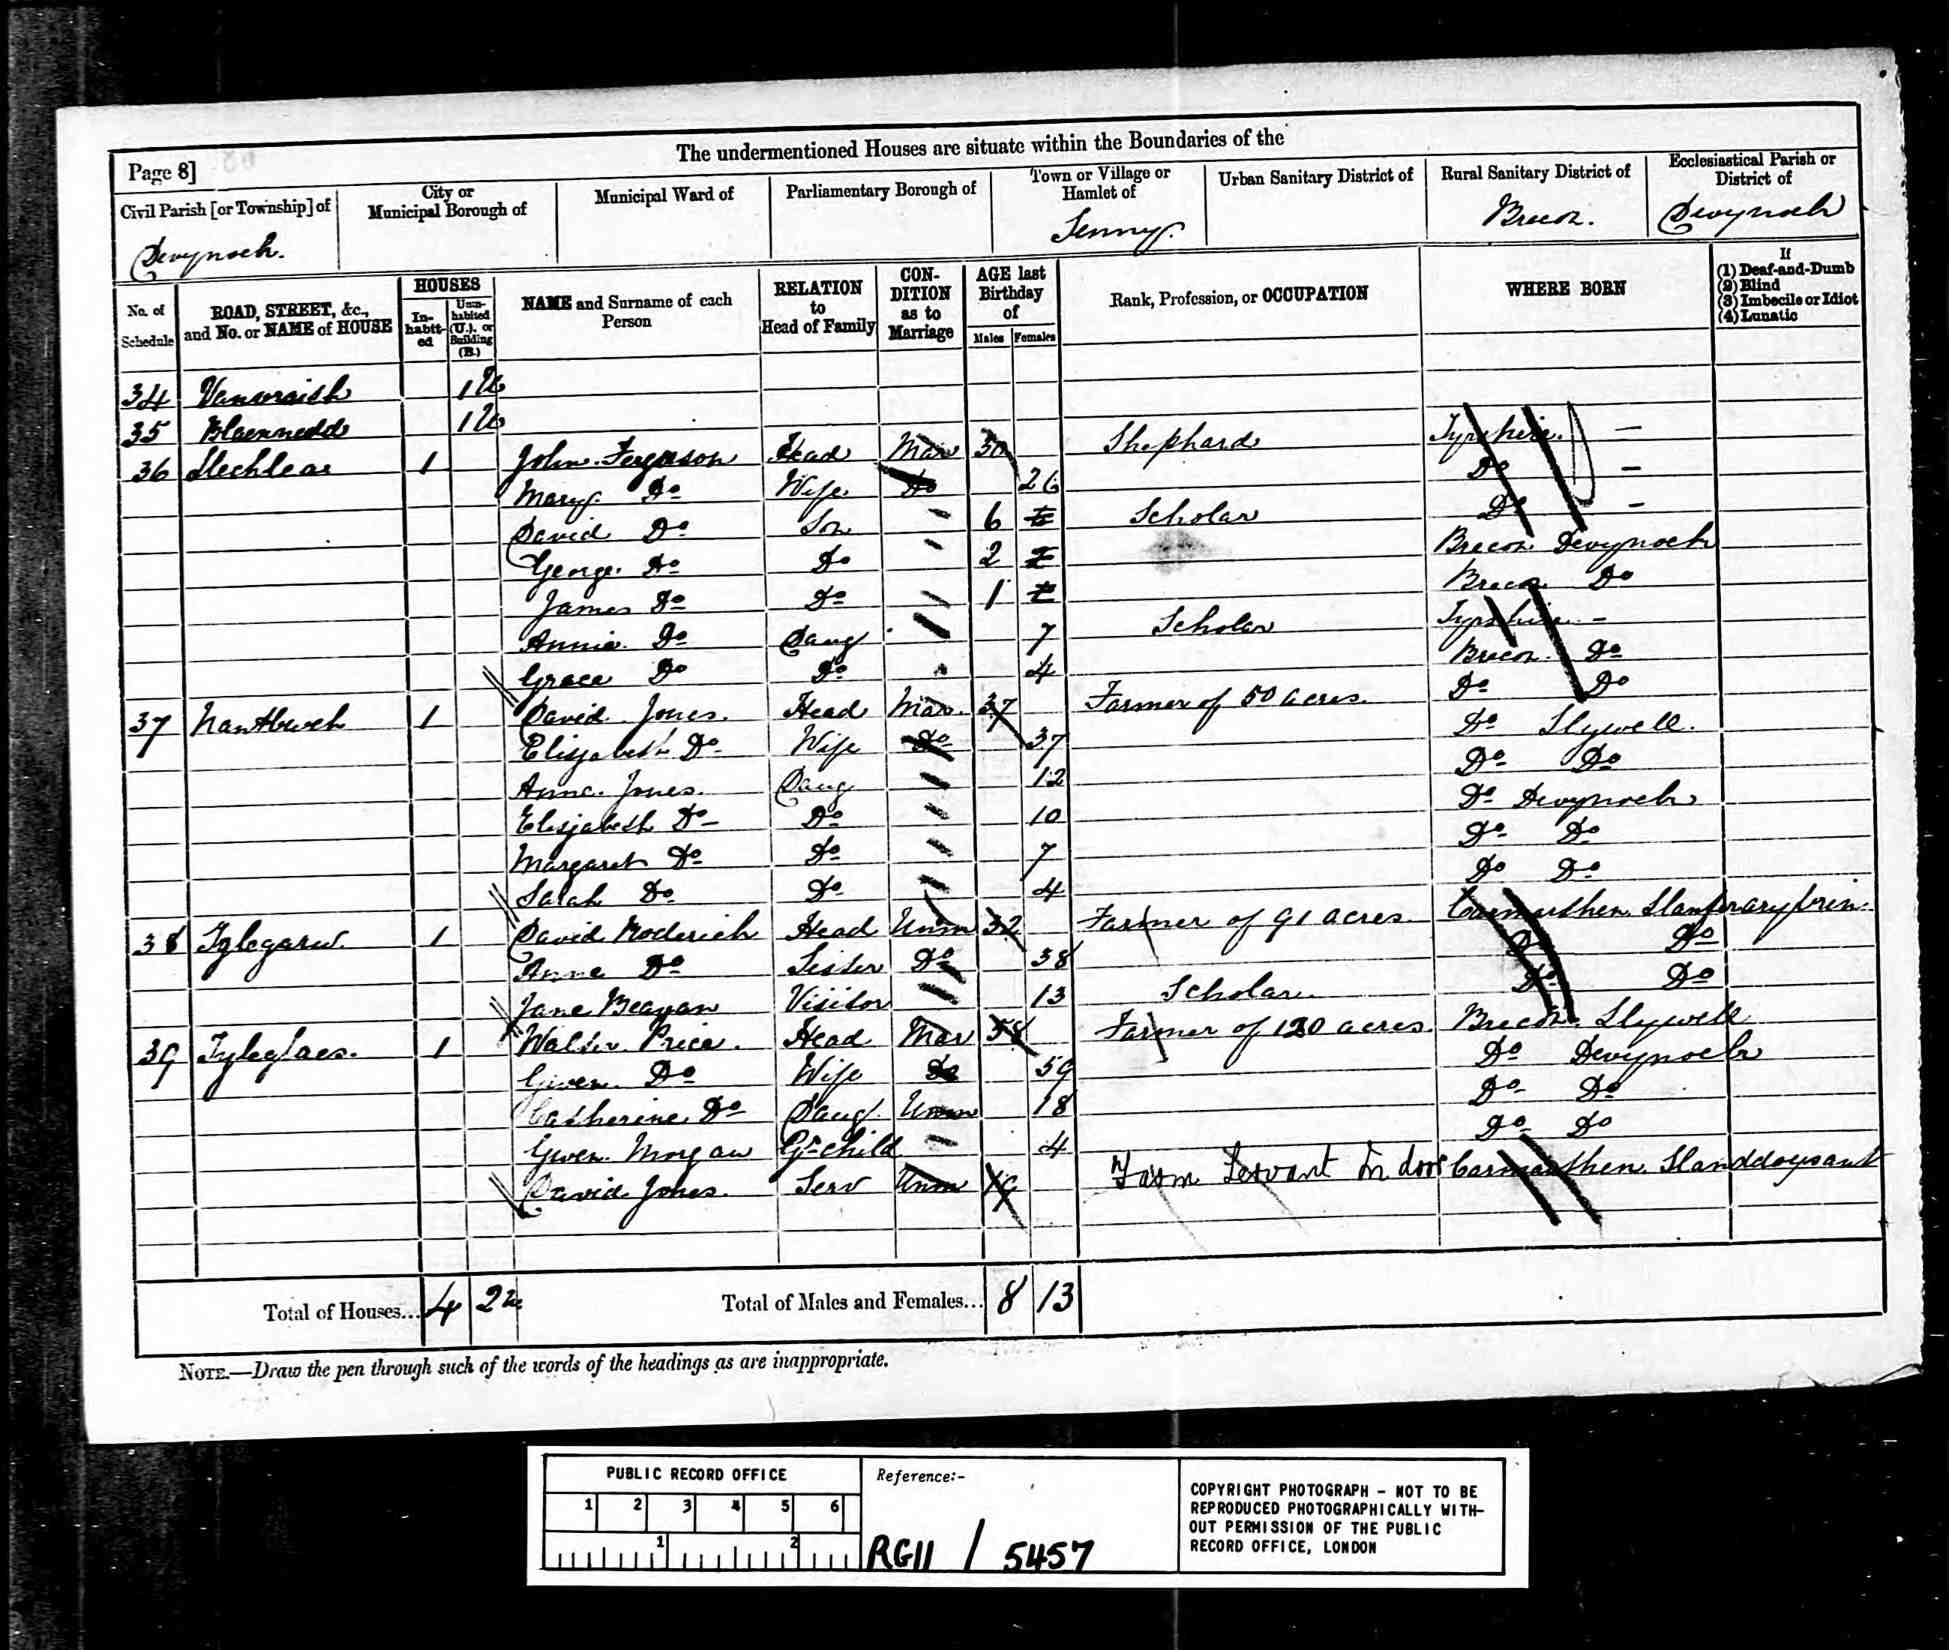 The undermentioned Houses are situate within the Boundaries of the
Page 8]
Civil Parish [or Township] of
Devynock.
City or Municipal Borough of
Municipal Ward of
Parliamentary Borough of
Town or Village or Hamlet of
Senny.
Urban Sanitary District of
Rural Sanitary District of
Brecon.
Ecclesiastical Parish or District of
Devynock
No. of Schedule
ROAD, STREET, &c., and No. or NAME of HOUSE
HOUSES
In-habit-ed
Unin-habited (U.), or Building (B.)
NAME and Surname of each Person
RELATION to Head of Family
CON-DITION as to Marriage
AGE last Birthday of
Males Females
Rank, Profession, or OCCUPATION
WHERE BORN
If
(1) Deaf-and-Dumb
(2) Blind
(3) Imbecile or Idiot
(4) Lunatic
34 1 U
35 Blaennedd 1 U
36 Llechleas 1 John Ferguson Head Mar 30 Shephard
Mary Do Wife Do 26 Do -
David Do Son 6 Scholar Do -
George Do Do 2 Brecon Devynock
James Do Do 1 Brecon Do
Annie Do Daug 7 Scholar -
Grace Do Do 4 Brecon Do
37 1 David Jones. Head Mar. 37 Farmer of 50 acres. Do Do
Elizabeth Do Wife Do 37 Do Llywell.
Anne Jones. Daug 12 Do Do
Elizabeth Do Do 10 Do Devynock
Margaret Do Do 7 Do Do
Sarah Do Do 4 Do Do
38 Tylegarw. 1 David Roderich Head Unm 32 Farmer of 91 acres. Carmarthen
Anne Do Sister Do 38 Do Do
Jane Beavan Visitor 13 Scholar. Do Do
39 Tyleglaes. 1 Walter Price. Head Mar 58 Farmer of 120 acres. Brecon Llywell
Gwen Do Wife Do 59 Do Devynock
Catherine Do Daug. Unm 18 Do Do
Gwen Morgan Gr child 4 Do Do
David Jones. Serv Unm 19 Farm Servant In door Carmarthen Llanddoysant
Total of Houses... 4 2 U
Total of Males and Females... 8 13
NOTE.—Draw the pen through such of the words of the headings as are inappropriate.
PUBLIC RECORD OFFICE
1 2 3 4 5 6
1 2
Reference:-
RG11 / 5457
COPYRIGHT PHOTOGRAPH - NOT TO BE
REPRODUCED PHOTOGRAPHICALLY WITH-
OUT PERMISSION OF THE PUBLIC
RECORD OFFICE, LONDON